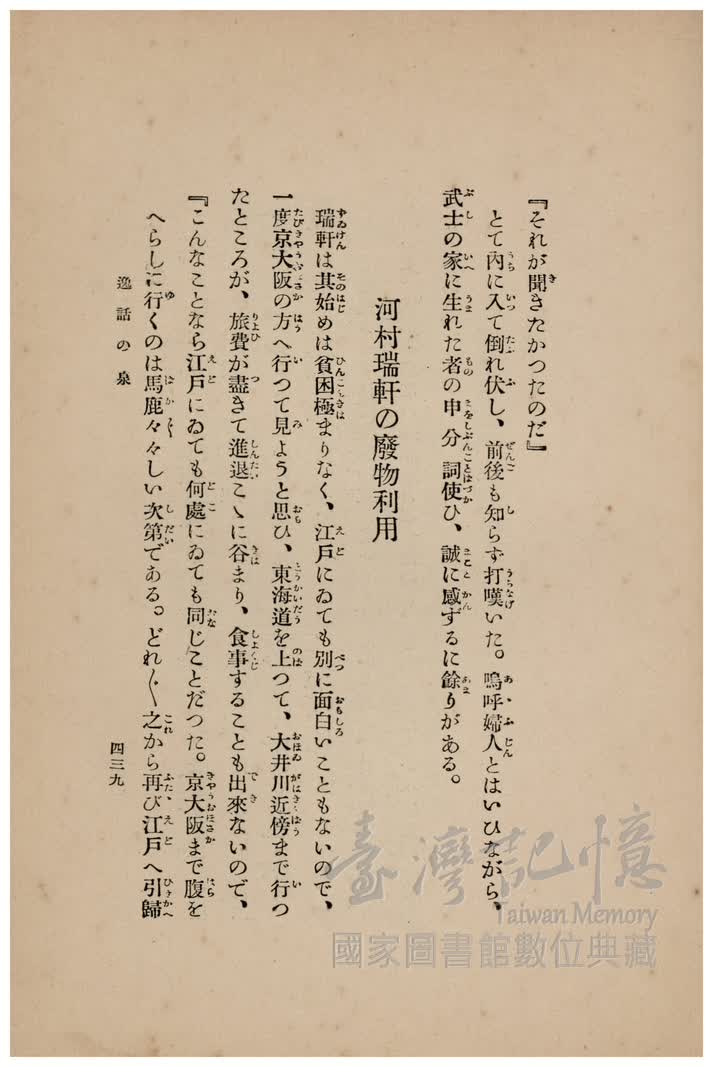 『それが聞きたかつたのだ』
とて內に入て倒れ伏し、前後も知らず打嘆いた。嗚呼婦人とはいひながら、
武士の家に生れた者の申分 詞使ひ、誠に感ずるに餘りがある。
河村瑞軒の廢物利用
瑞軒は其始めは貧困極まりなく、江戸にゐても別に面白いこともないので、
一度京大阪の方へ行つて見ようと思ひ、東海道を上つて、大井川近傍まで行つ
たところが、旅費が盡きて進退こゝに谷まり、食事することも出來ないので、
『こんなことなら江戸にゐても何處にゐても同じことだつた。京大阪まで腹を
へらしに行くのは馬鹿々々しい次第である。どれ〳〵之から再び江戸へ引歸
逸話の泉
四三九
臺灣記憶
Taiwan Memory
國家圖書館數位典藏